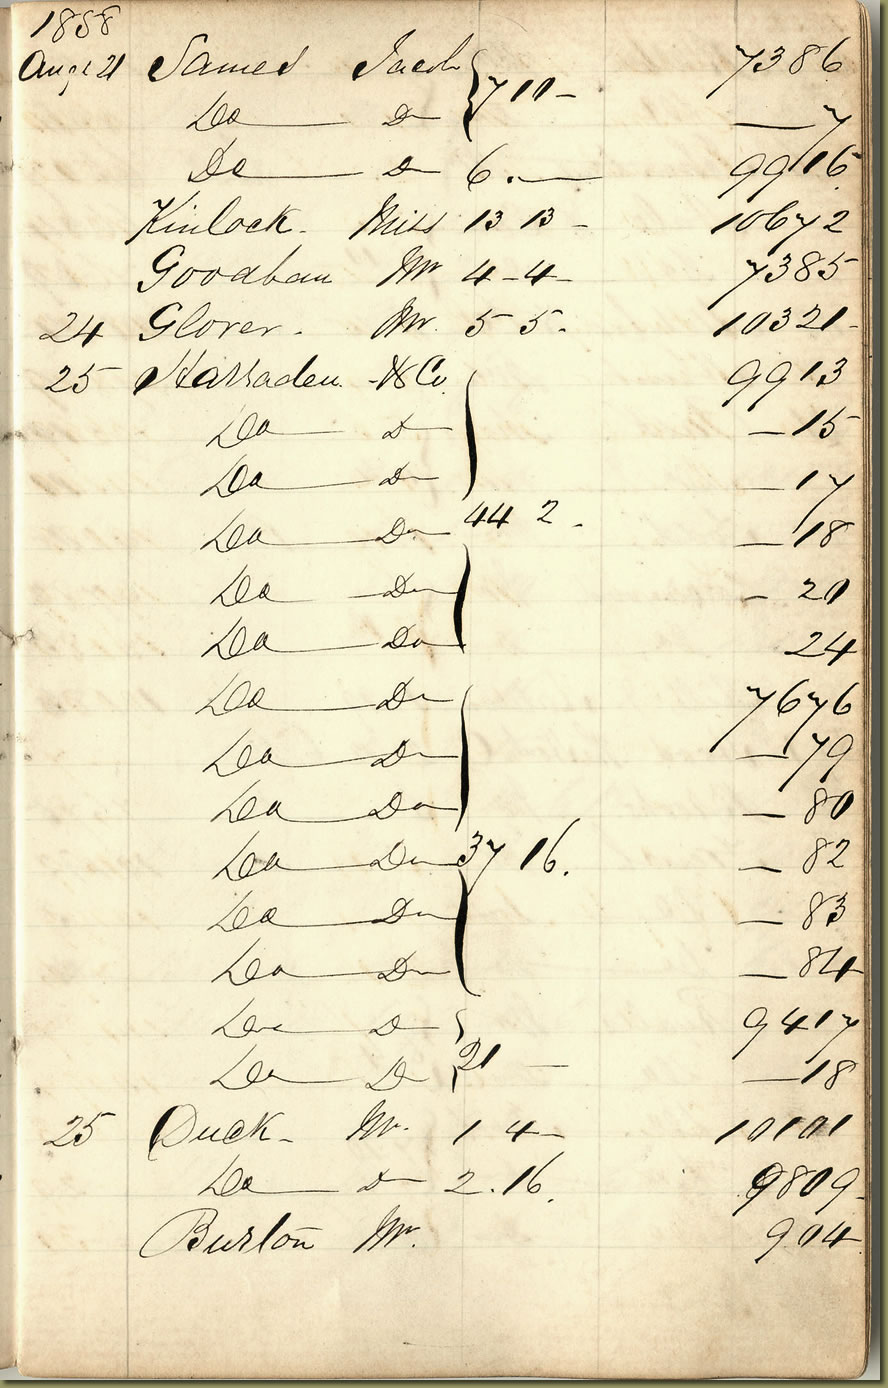 1858
Augt 21 James Jacob 7 10 - 7386
Do Do — 7
Do Do 6. — 9916
Kinlock - Miss 13 13 - 10672
Goodban Mr 4 - 4 - 7385
24 Glover - Mr. 5 5 - 10321 -
25 Harraden & Co. 9913
Do Do — 15
Do Do — 17
Do Do 44 2 - — 18
Do Do - 20
Do Do 24
Do Do 7676
Do Do — 79
Do Do — 80
Do Do 37 16. — 82
Do Do — 83
Do Do — 84
Do Do 9417
Do Do 21 — — 18
25 Duck - Mr. 1 4 - 10101
Do Do 2. 16. 9809
Burton Mr. 904